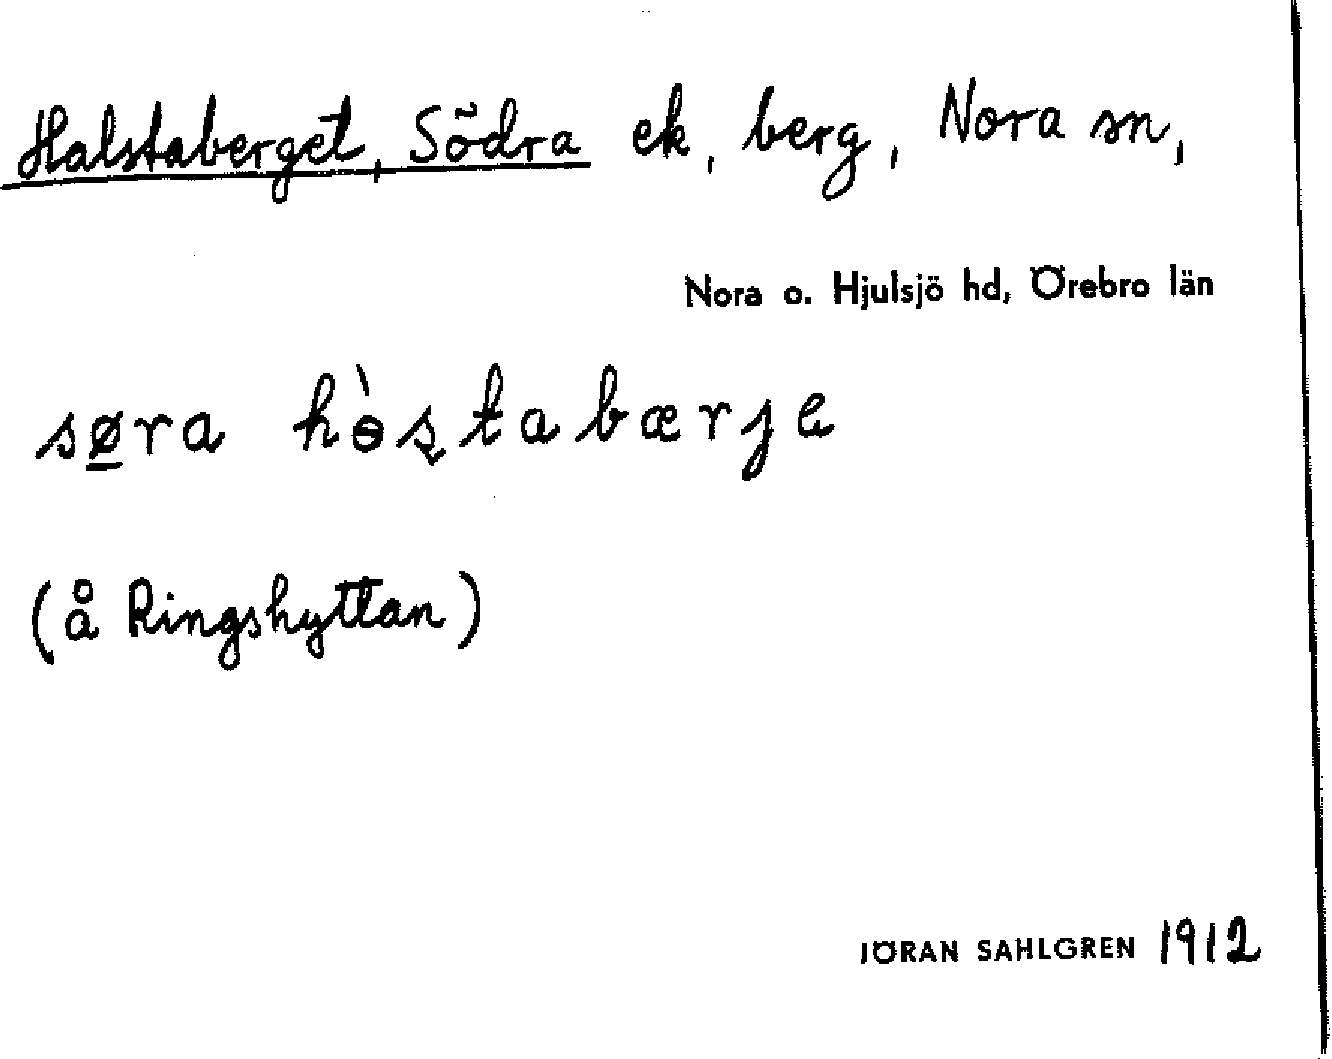 Halstaberget, Södra ek, berg, Nora sn,
Nora o. Hjulsjö hd, Örebro län
sø̲ra hɵ̀ʂtabærje
(å Ringshyttan)
JÖRAN SAHLGREN 1912